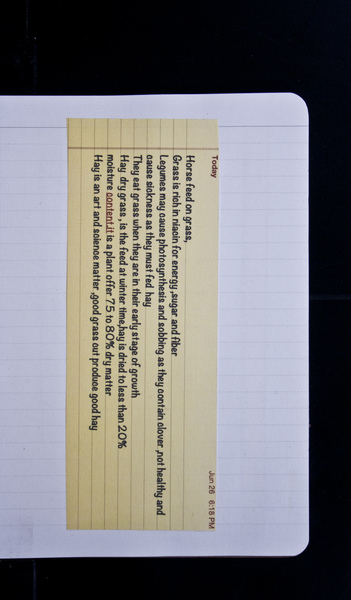 Today Jun 26 6:18 PM
Horse feed on grass,
Grass is rich in niacin for energy ,sugar and fiber
Legumes may cause photosynthesis and sobbing as they contain clover ,not healthy and
cause sickness as they must fed hay
They eat grass when they are in their early stage of growth
Hay dry grass , is the feed at winter time,hay is dried to less than 20%
moisture content.it is a plant offer 75 to 80% dry matter
Hay is an art and science matter ,good grass out produce good hay